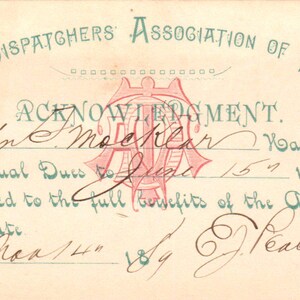 DISPATCHERS' ASSOCIATION OF
ACKNOWLEDGMENT.
Mocklar Ha
ual Dues to June 15th
ed to the full benefits of the
te
14th 189 By E. J. Pea